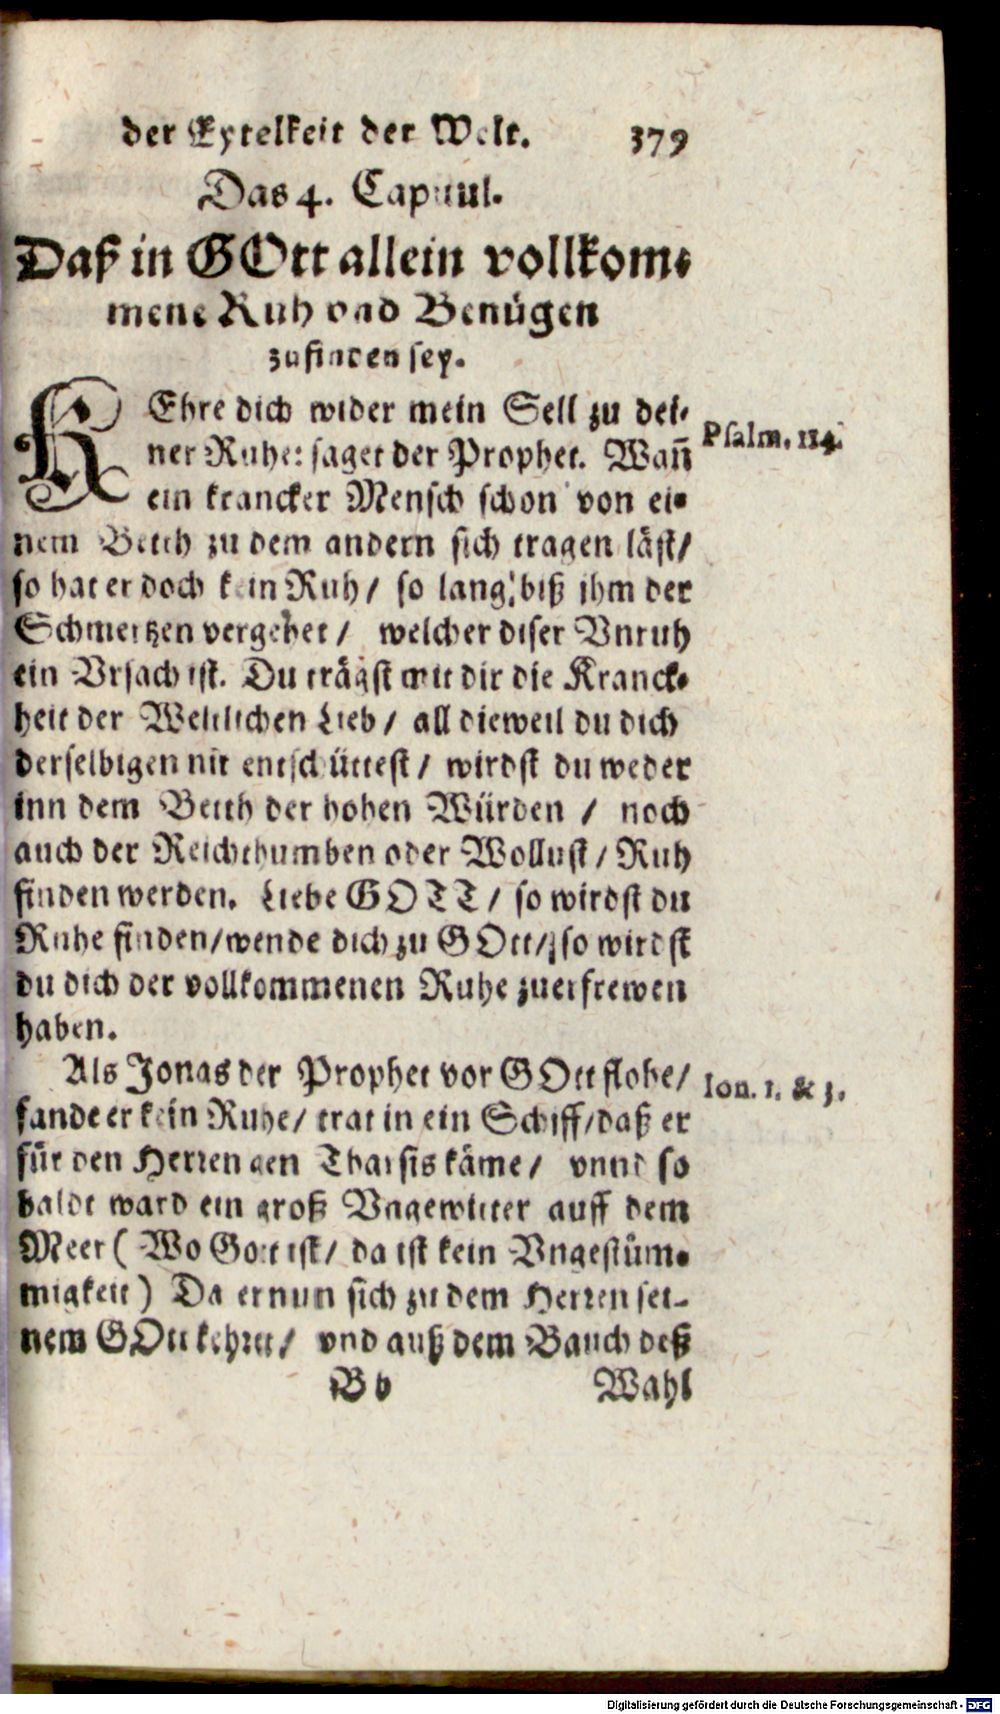 der Eytelkeit der Welt. 379
Das 4. Capitul.
Daß in GOtt allein vollkom-
mene Ruh vnd Benügen
zufinden sey.
KEhre dich wider mein Sell zu dei-
ner Ruhe: saget der Prophet. Wañ
Psalm. 114.
ein krancker Mensch schon von ei-
nem Betth zu dem andern sich tragen läst/
so hat er doch kein Ruh/ so lang biß ihm der
Schmertzen vergehet/ welcher diser Vnruh
ein Vrsach ist. Du trägst mit dir die Kranck-
heit der Weltlichen Lieb/ all dieweil du dich
derselbigen nit entschüttest/ wirdst du weder
inn dem Betth der hohen Würden / noch
auch der Reichthumben oder Wollust/ Ruh
finden werden. Liebe GOTT/ so wirdst du
Ruhe finden/wende dich zu GOtt/ so wirdst
du dich der vollkommenen Ruhe zuerfrewen
haben.
Als Jonas der Prophet vor GOtt flohe/
Ion. 1. & 3.
fande er kein Ruhe/ trat in ein Schiff/daß er
für den Herren gen Tharsis käme/ vnnd so
baldt ward ein groß Vngewitter auff dem
Meer ( Wo Gott ist/ da ist kein Vngestüm-
migkeit) Da er nun sich zu dem Herren sei-
nem GOtt kehret/ vnd auß dem Bauch deß
Bb Wahl
Digitalisierung gefördert durch die Deutsche Forschungsgemeinschaft - DFG